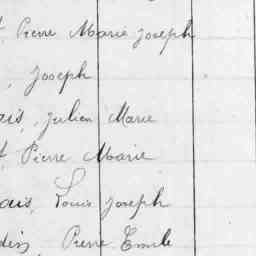 Pierre Marie Joseph
, Joseph
ais, Julien Marie
Pierre Marie
ais, Louis Joseph
Pierre Emile